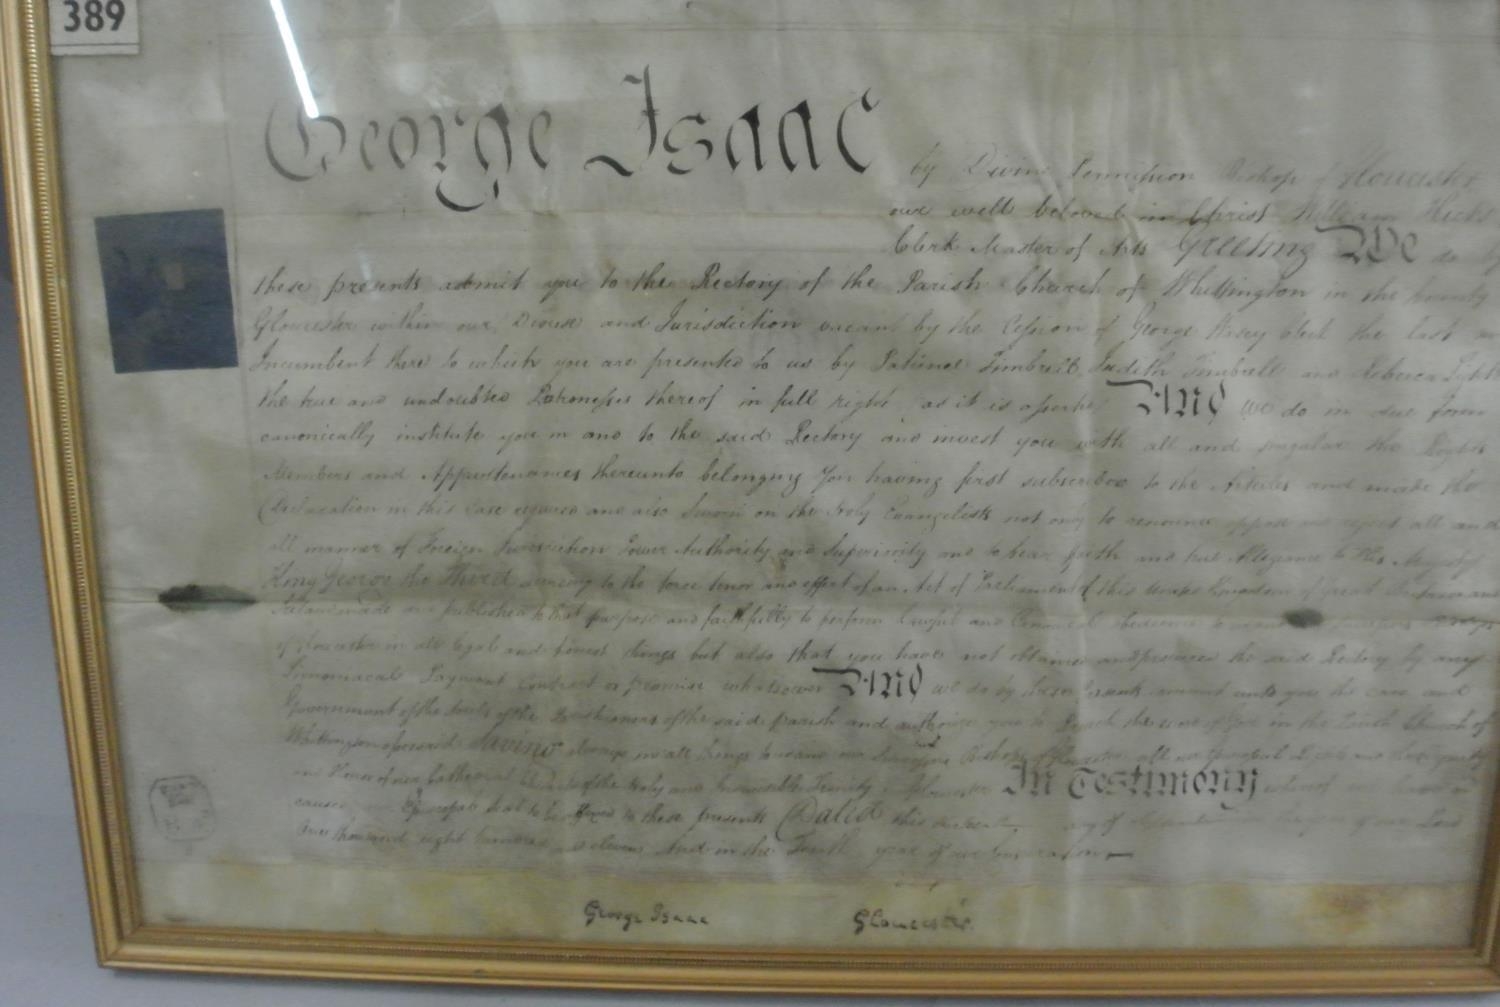 389
George Isaac by Divine Permission Bishop of Gloucester
our well beloved in Christ William Hicks
Clerk Master of Arts Greeting We do by
these presents admit you to the Rectory of the Parish Church of Whittington in the County
Gloucester within our Diocese and Jurisdiction vacant by the Cession of George Clerk the last
Incumbent there to which you are presented to us by Patience Timbrell Judith Timbrell and Rebecca
the true and undoubted Patronesses thereof in full right as it is asserted And We do in due form
canonically institute you in and to the said Rectory and invest you with all and singular the Rights
Members and Appurtenances thereunto belonging You having first subscribed to the Articles and made the
Declaration in this case required and also Sworn on the Holy Evangelists not only to renounce oppose and reject all and
all manner of Foreign Jurisdiction Power Authority and Superiority and to bear faith and true Allegiance to His Majesty
King George the Third according to the force tenor and effect of an Act of Parliament of this United Kingdom of Great Britain and
Ireland made and published to that purpose and faithfully to perform Lawful and Canonical obedience to us and our Successors Bishops
of Gloucester in all legal and honest things but also that you have not obtained and procured the said Rectory by any
Simoniacal Payment Contract or promise whatsoever And we do by these Presents commit unto you the care and
Government of the Souls of the Parishioners of the said parish and authorize you to Preach the word of God in the Parish Church of
Whittington aforesaid Saving always in all things to us and our Successors Bishops of Gloucester all our Episcopal Rights and the Dignity
and Honor of our Cathedral Church of the Holy and Indivisible Trinity Gloucester In Testimony whereof we have
caused our Episcopal Seal to be affixed to these presents Dated this day of in the year of our Lord
One thousand eight hundred and eleven And in the year of our Consecration
George Isaac Gloucester.